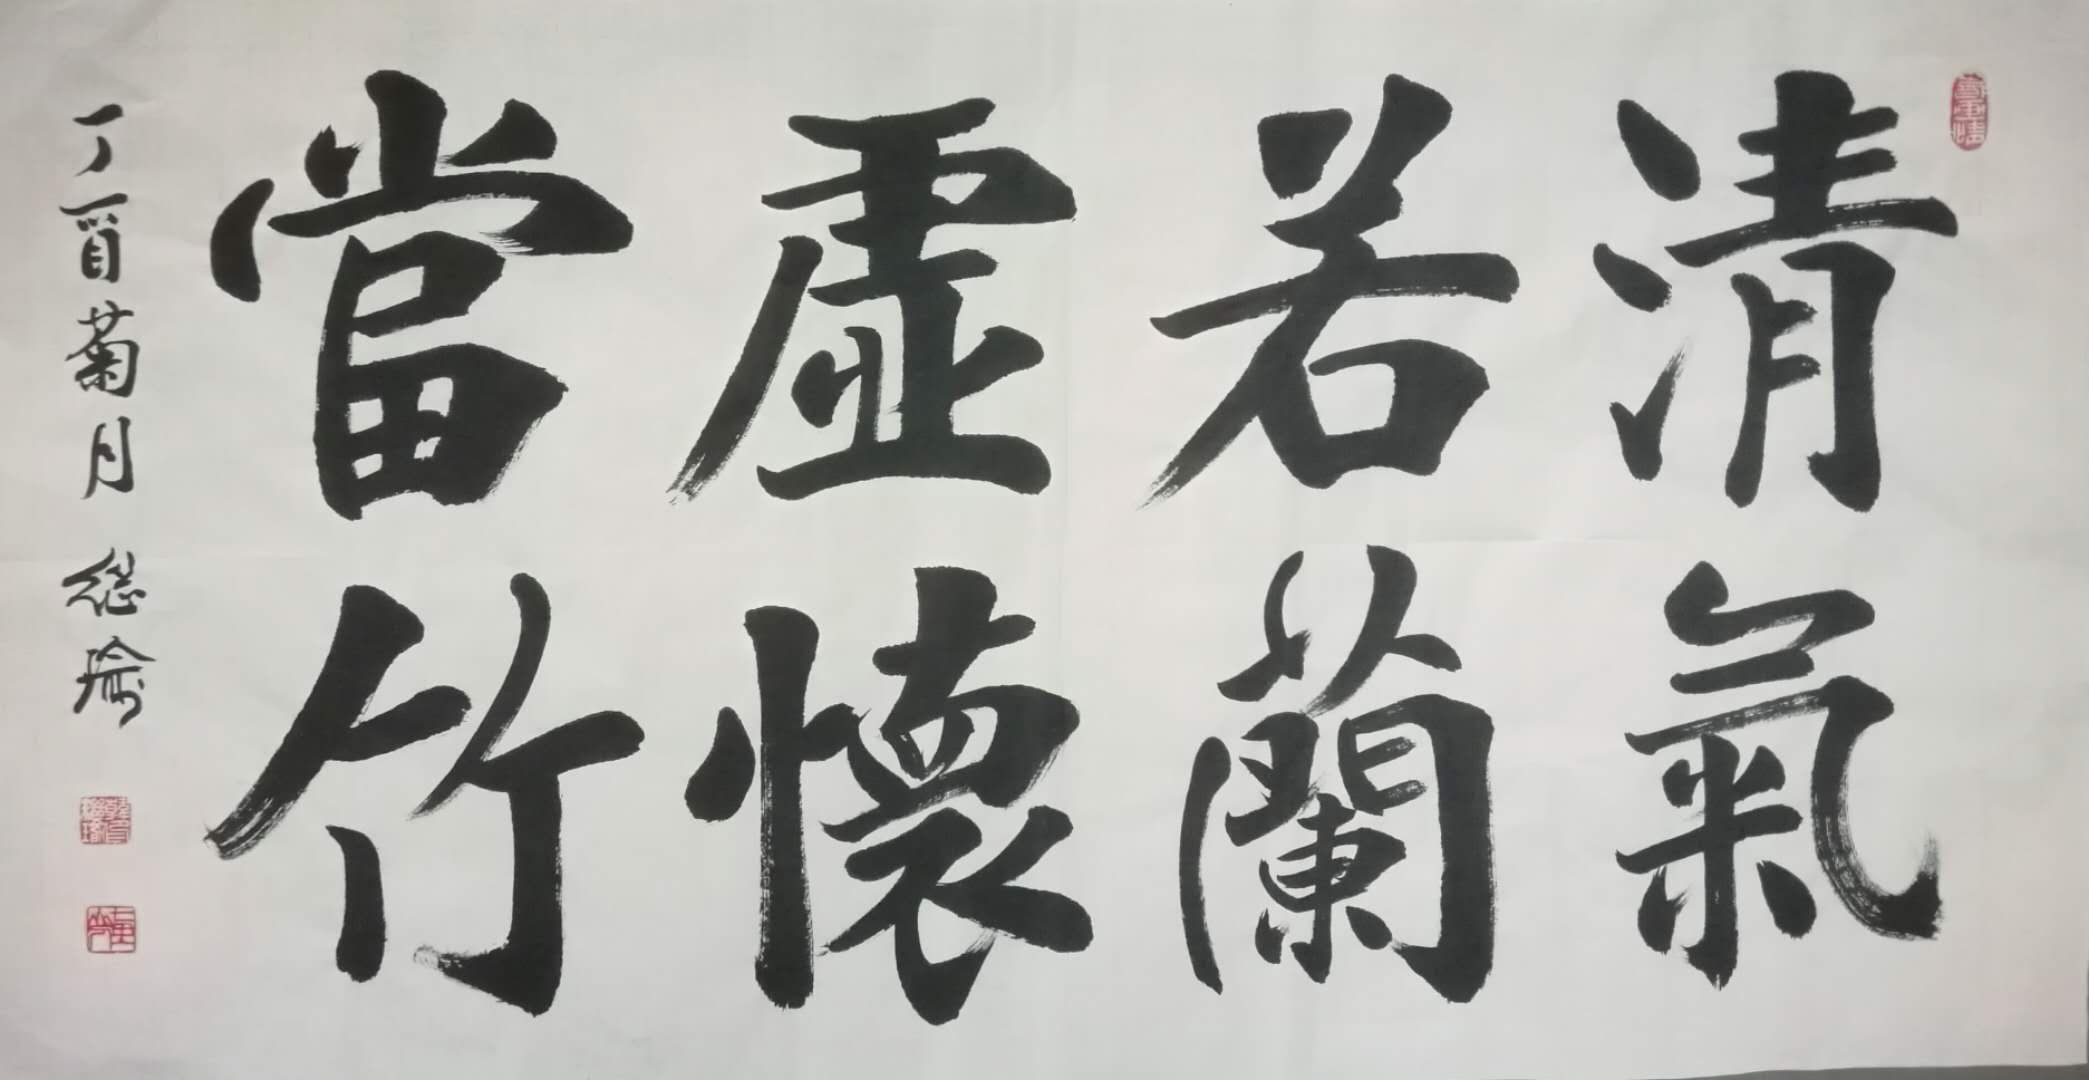 清氣
若蘭
虛懷
當竹
丁酉菊月 继瑜